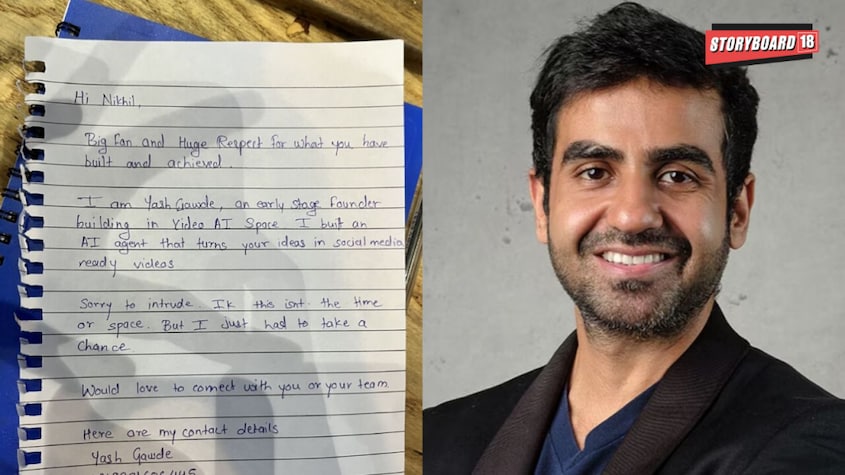 Hi Nikhil,
Big fan and Huge Respect for what you have
built and achieved.
I am Yash Gawde, an early stage founder
building in Video AI Space. I built an
AI agent that turns your ideas in social media
ready videos
Sorry to intrude. Ik this isnt the time
or space. But I just had to take a
Chance
Would love to connect with you or your team.
Here are my contact details
Yash Gawde
STORYBOARD 18